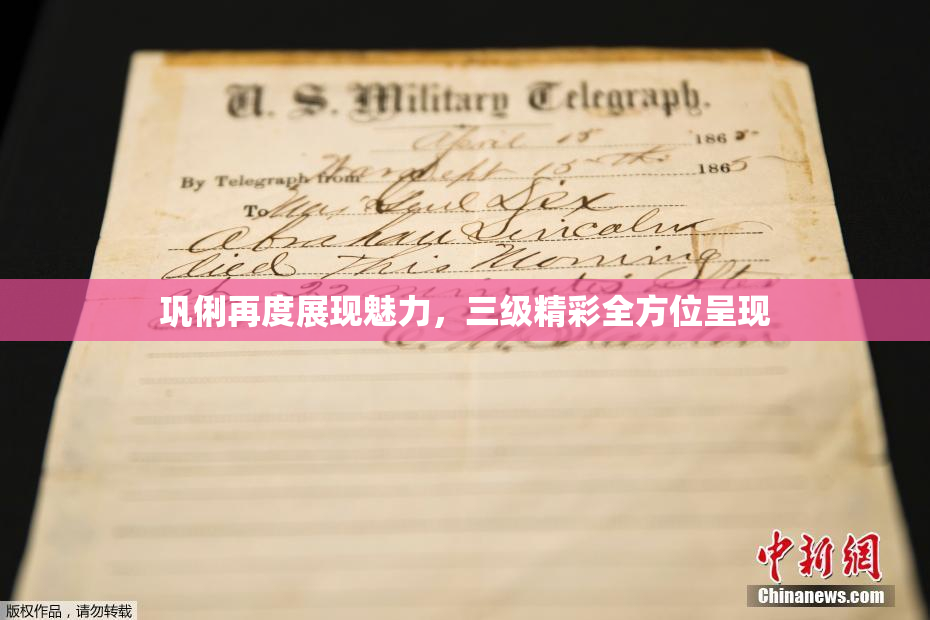 U. S. Military Telegraph.
April 15 1865
By Telegraph from War Dept 15th 1865
To Maj Genl Dix
Abraham Lincoln
died This Morning
at 22 minutes after
巩俐再度展现魅力，三级精彩全方位呈现
E. M. Stanton
中新网
Chinanews.com
版权作品，请勿转载